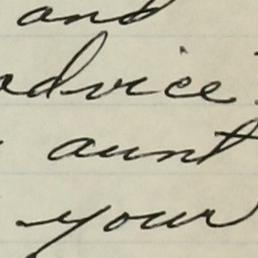 and
advice
aunt
your